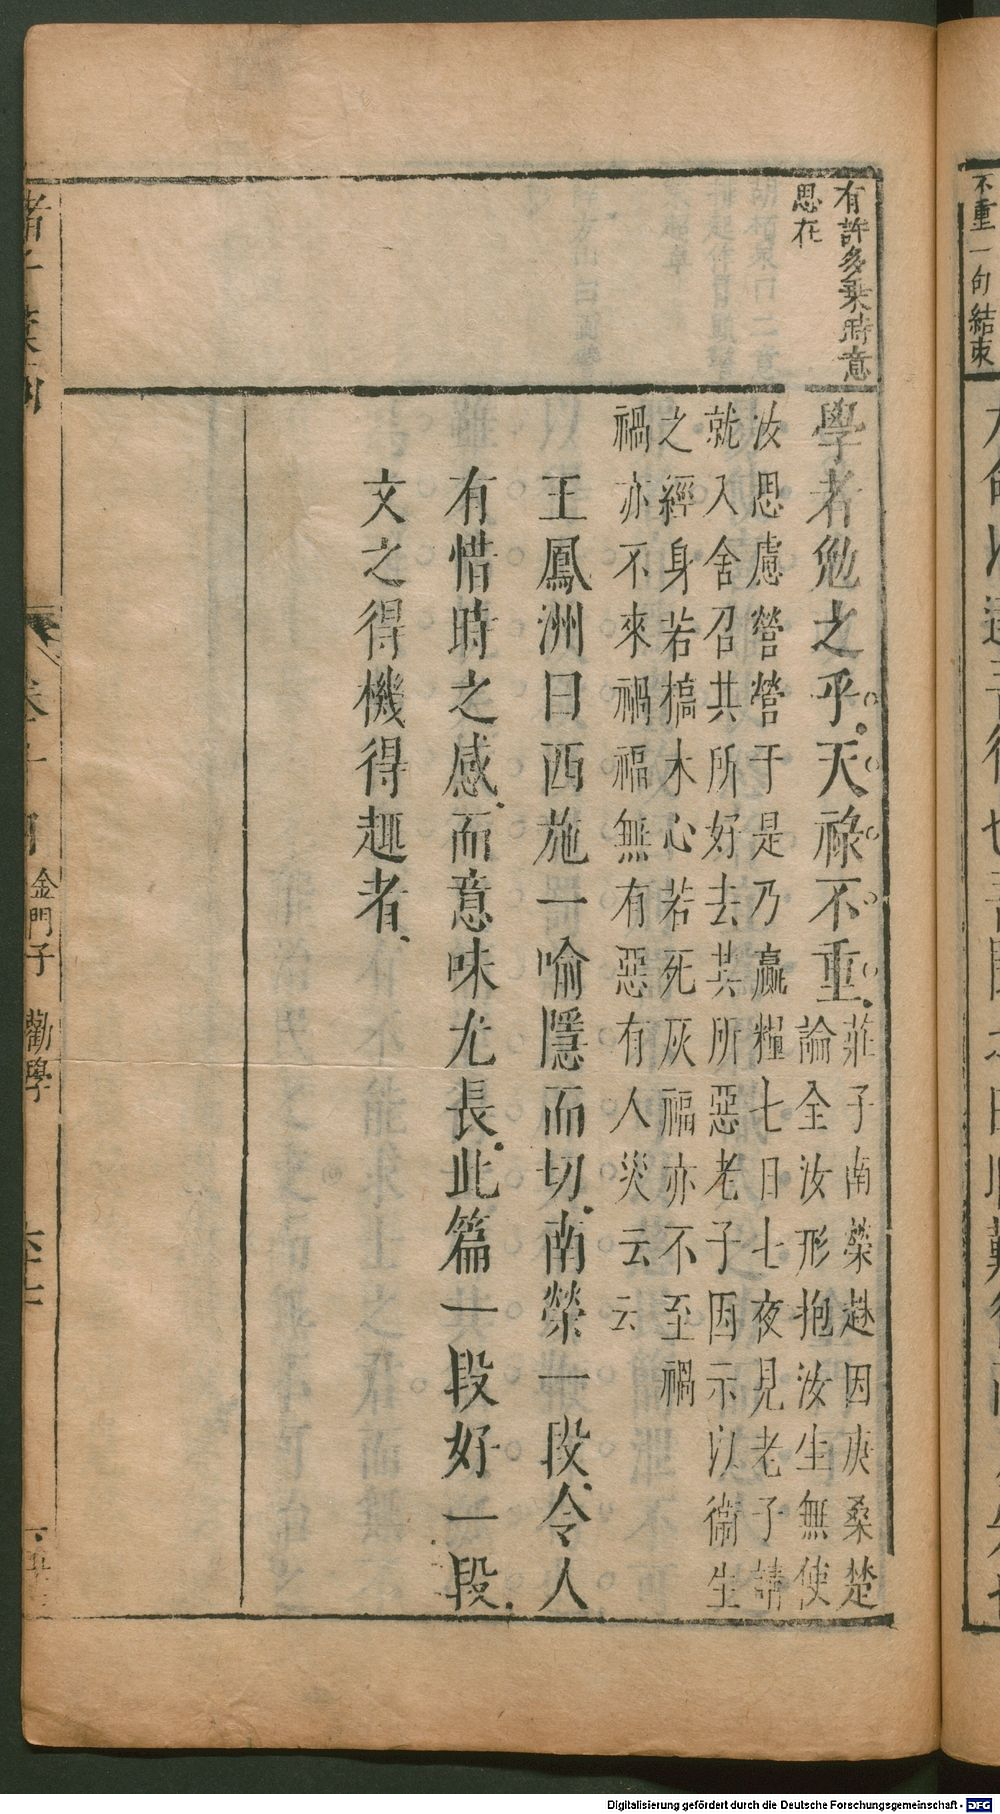 不重一句結束
有許多乘時意
思在
學者勉之乎天祿不重
莊子南榮趎因庚桑楚
論全汝形抱汝生無使
汝思慮營營于是乃贏糧七日七夜見老子請
就入舍召共所好去共所惡老子因示以衛生
之經身若槁木心若死灰福亦不至禍
禍亦不來禍福無有惡有人災云云
王鳳洲曰西施一喻隱而切南榮一段令人
有惜時之感而意味尤長此篇一段好一段
文之得機得趣者
金門子 勸學
Digitalisierung gefördert durch die Deutsche Forschungsgemeinschaft - DFG